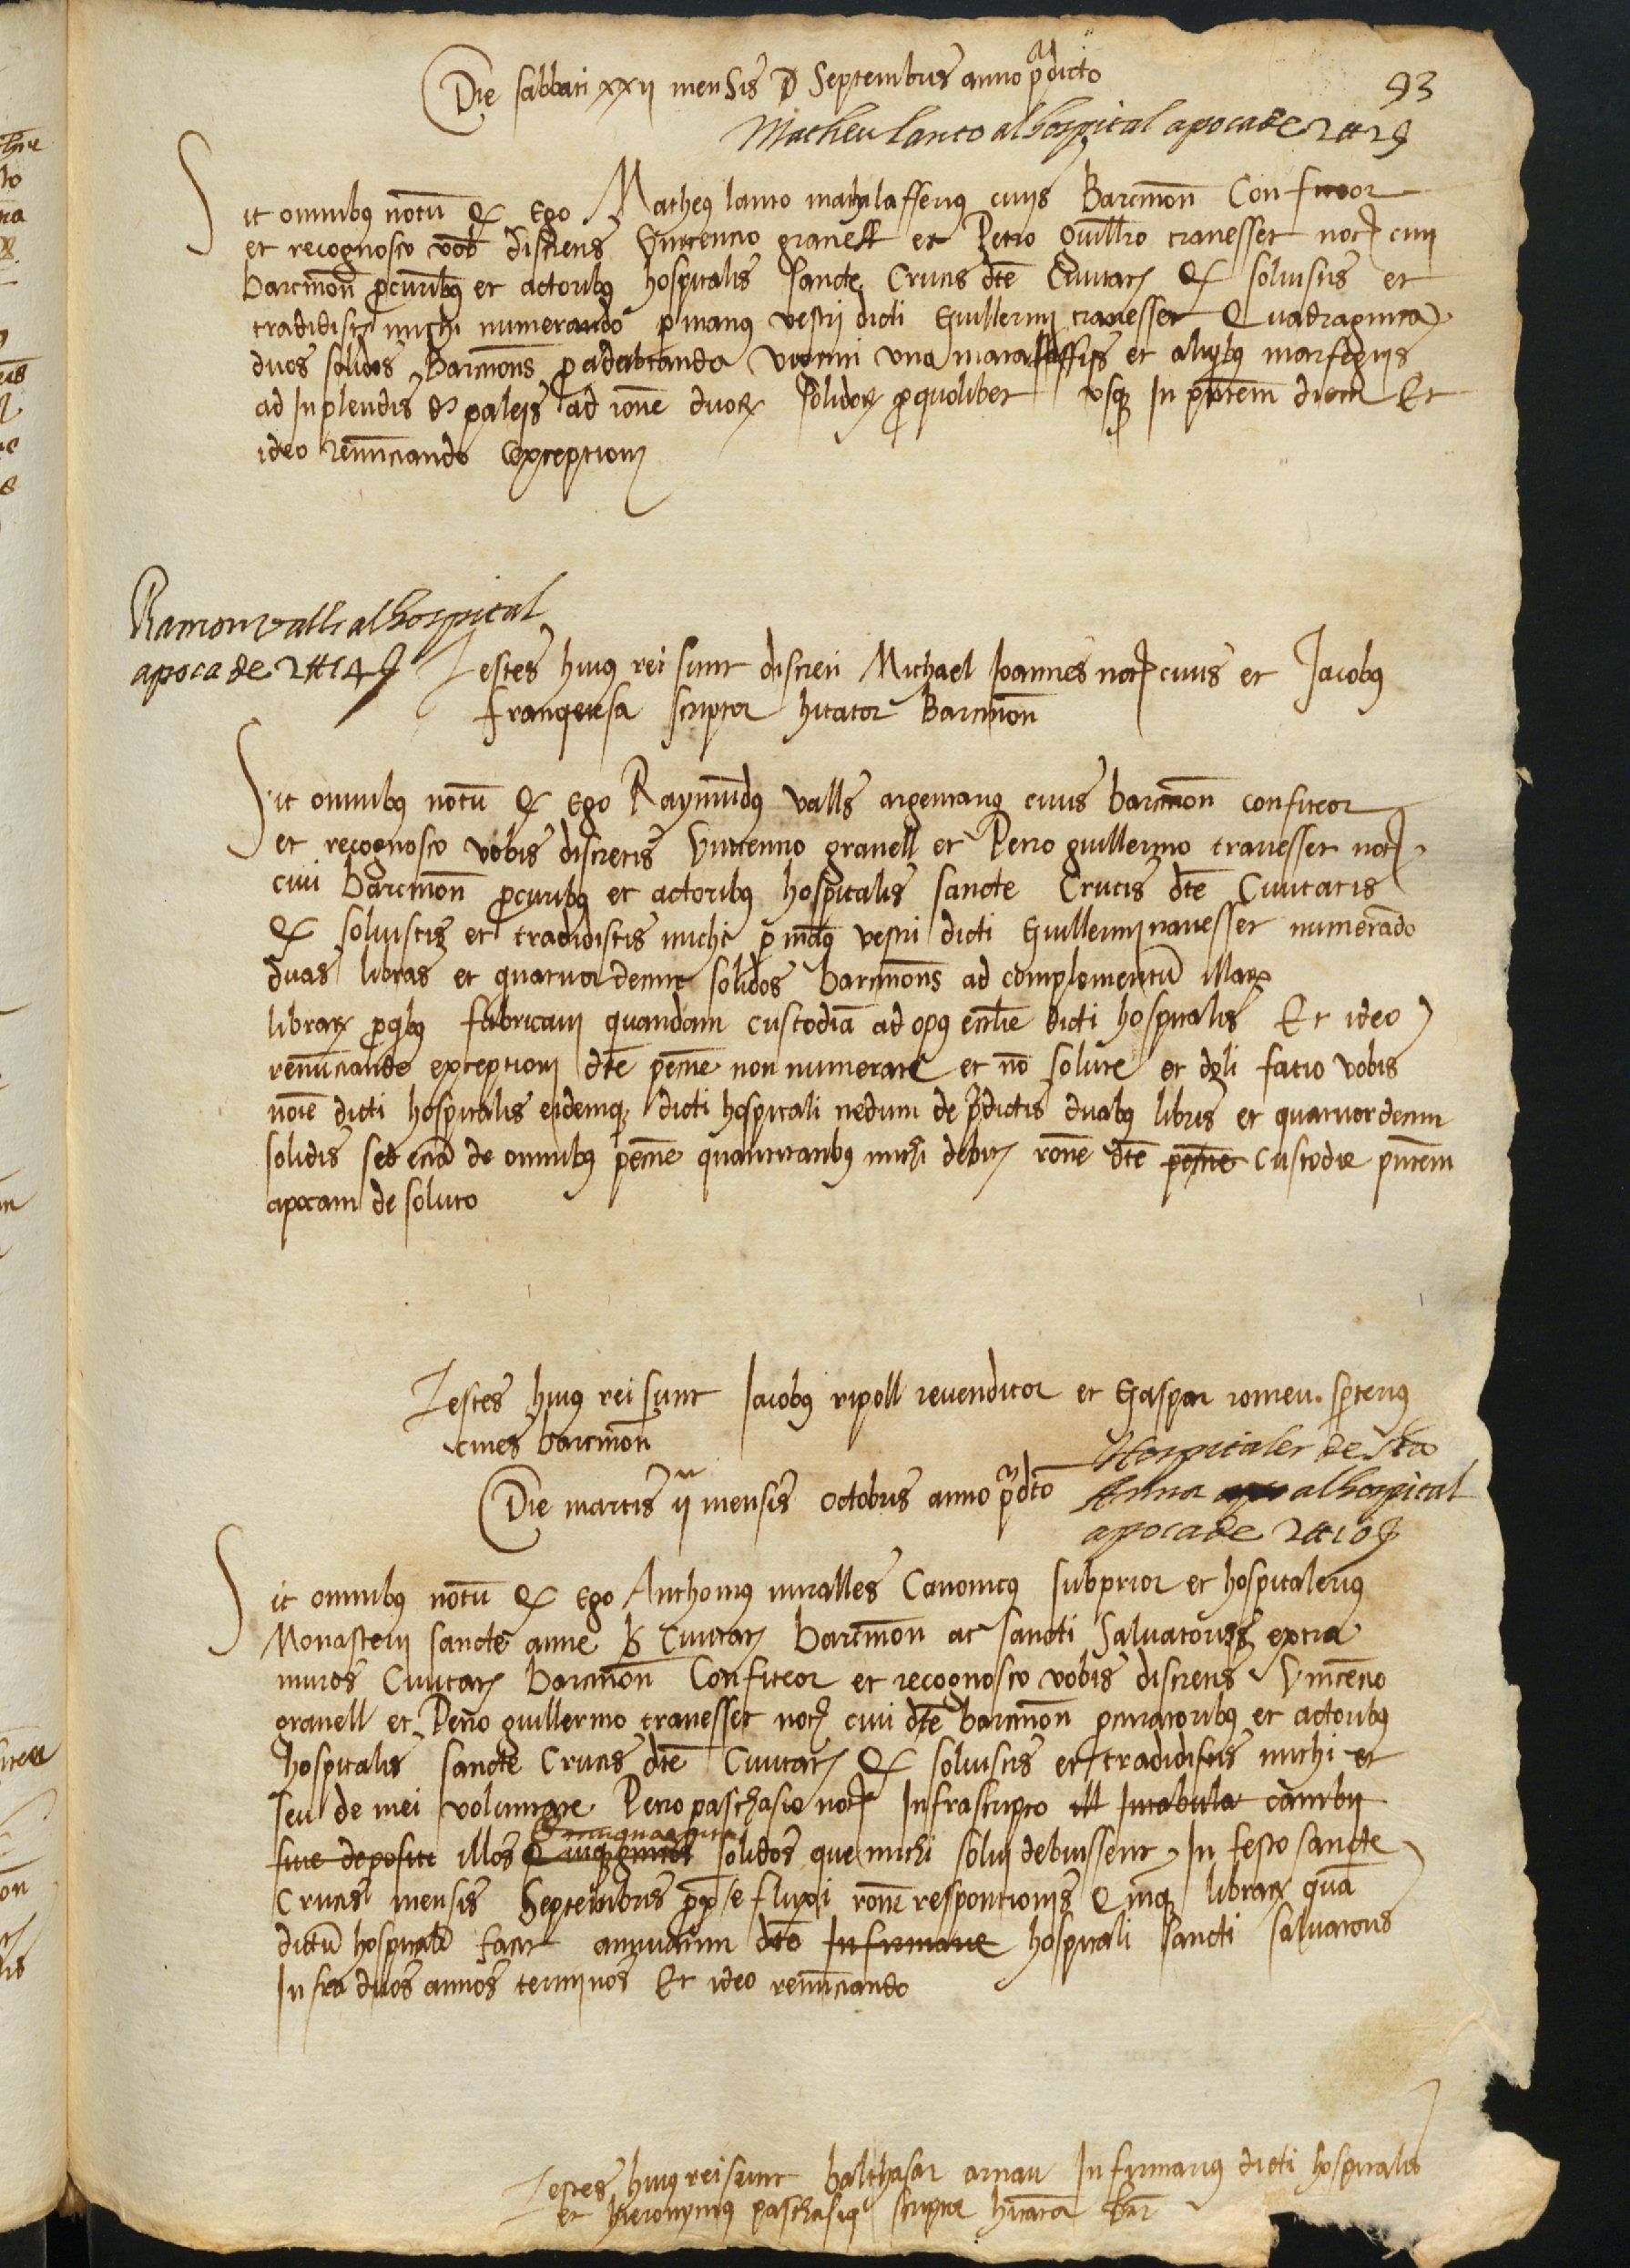 Die sabbati xxij mensis Septembris anno pͣdicto
93
Matheu lanco al hospital apoca de 2 ₶ 2 ſ
Sit omnibꝰ notũ ꝙ ego Matheꝰ lanco matalafferiꝰ civis Barcinoñ Confiteor
et recognosco vob discretis Vincencio granell et Petro guillr̃o travesser notꝭ civi
barcinoñ ꝓcuribꝰ et actoribꝰ hospitalis Sancte Crucis dt̃e Civitatꝭ ꝙ solvistis et
tradidistꝭ michi numerando ꝑ manꝰ vestri dicti Guillermi travesser Quadraginta
duos solidos Barcinoñs ꝓ adobtando viginti una matalaffijs et aliqbꝰ marfeguis
ad inplendis de paleis ad rõne duorꝝ solidorꝝ ꝓ quolibet usqꝫ in pñtem diem Et
ideo renũciando exceptioni
Ramon valls al hospital
apoca de 2 ₶ 14 ſ
Testes huiꝰ rei sunt discreti Michael Joannes notꝭ civis et Jacobus
franqueſa scriptor hitator Barcinoñ
Sit omnibꝰ notũ ꝙ ego Raymũdꝰ valls argentariꝰ civis barcinoñ confiteor
et recognosco vobis discretis Vincencio granell et Petro guillermo travesser notꝭ
civi barcinoñ ꝓcuribꝰ et actoribꝰ hospitalis sancte Crucis dt̃e Civitatis
ꝙ solvistis et tradidistis michi ꝑ mãꝰ vestri dicti Guillermi travesser numerãdo
duas libras et quatuordecim solidos barcinoñs ad complementũ illarꝝ
librarꝝ ꝓ qbꝰ fabricavi quandam custodiã ad opꝰ eccl̃ie dicti hospitalis Et ideo
renũciando exceptioni dt̃e pecũie non numerate et nõ solute et doli facio vobis
nõie dicti hospitalis eidemqꝫ dicti hospitali nedum de pͣdictis duabꝰ libris et quatuordecim
solidis sed eciã de omnibꝰ pecũie quantitatibꝰ michi debitꝭ rõne dt̃e pecũie custodie pñtem
apocam de soluto
Testes huiꝰ rei sunt Jacobꝰ ripoll revenditor et Gaspar romeu sꝑteriꝰ
cives barcinoñ
Hospitaler de Sta
Anna apo al hospital
apoca de 2 ₶ 10 ſ
Die martis ij mensis octobris anno pͣdcto
Sit omnibꝰ notũ ꝙ ego Anthoniꝰ miralles Canonicꝰ subprior et hospitaleriꝰ
Monasterij sancte anne Civitatꝭ barcinoñ ac sancti Salvatoris extra
muros Civitatꝭ barcinoñ Confiteor et recognosco vobis discretis Vincẽcio
granell et Petro guillermo travesser notꝭ civi dt̃e barcinoñ ꝓcuratoribꝰ et actoribꝰ
hospitalis sancte Crucis dt̃e Civitatꝭ ꝙ solvistis et tradidistis michi et
seu de mei voluntate Petro paschasio notꝭ Infrascripto ill Intabula cambij
sive depositi illos Quinquaginta solidos que michi solvi debuissent in festo sancte
Crucis mensis Septembris ꝓx̃ efluxi rõne responcionis Qinqꝫ librarꝝ quã
dictũ hospitale facit annuatim dt̃o Infirmarie hospitali Sancti Salvatoris
Infra duos annos terminos Et ideo renũciando
Testes huiꝰ rei sunt balthasar arnau Infirmariꝰ dicti hospitalis
et hieronymꝰ paschasiꝰ scriptor hitator bar̃